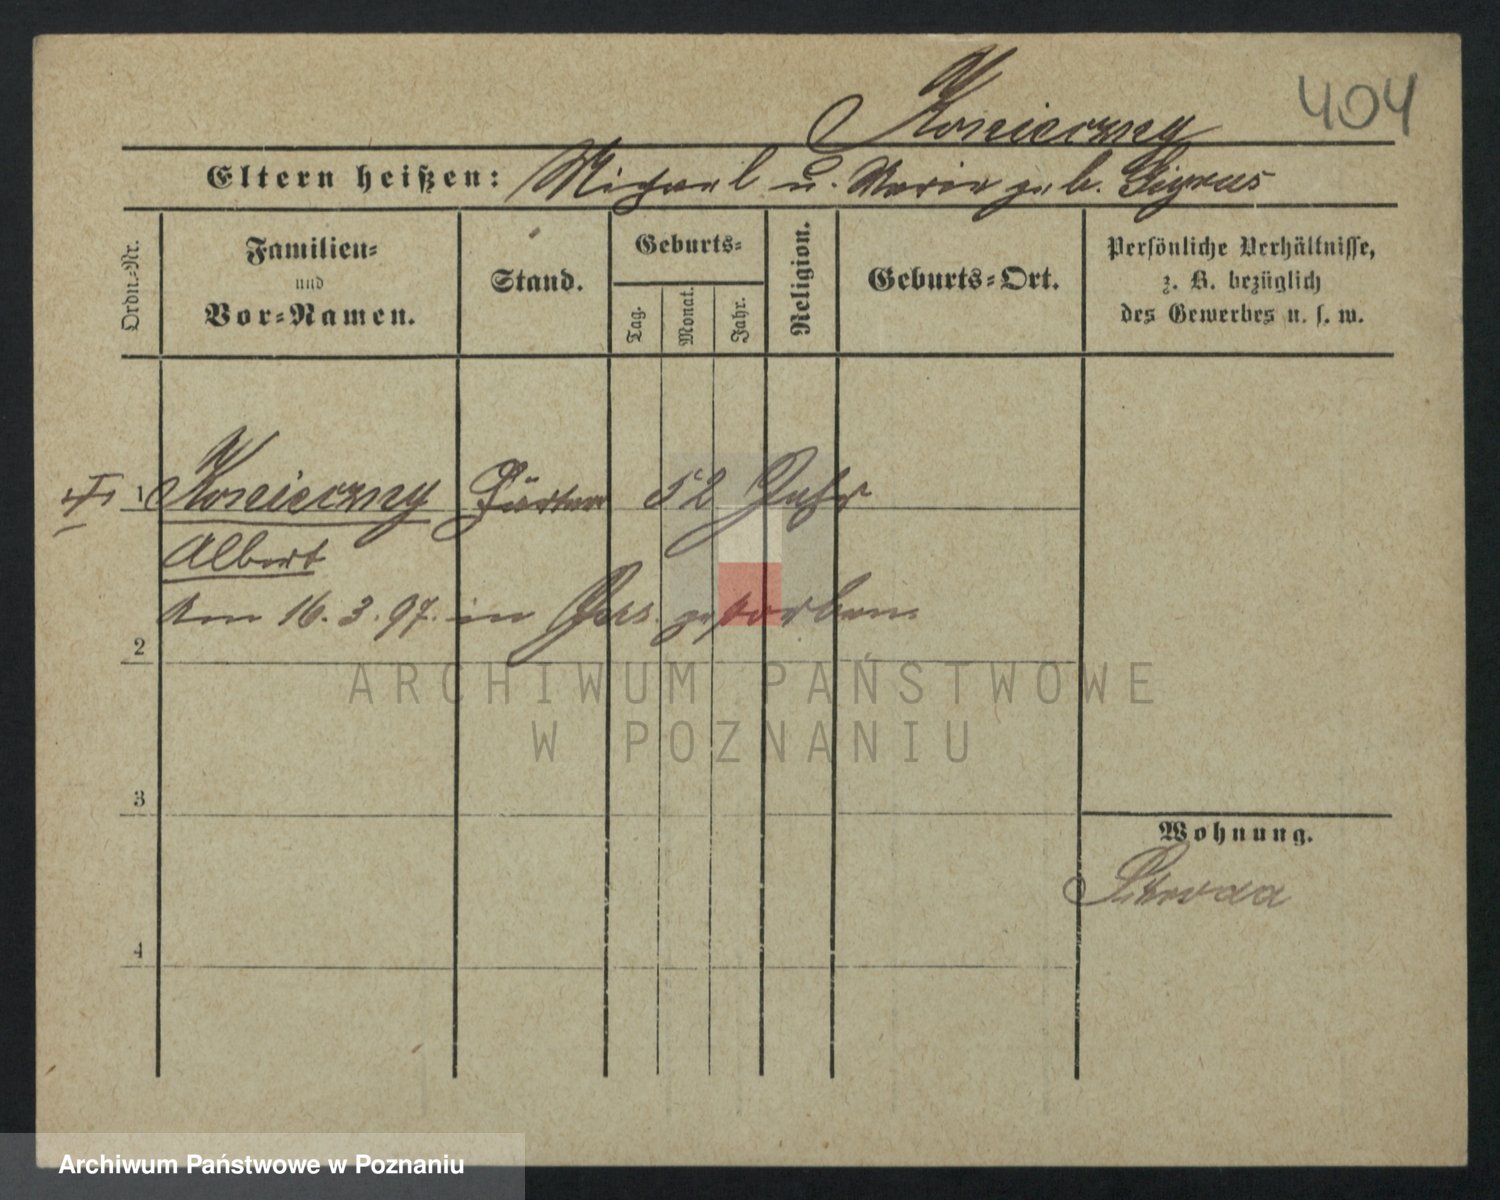 404
Konieczny
Eltern heißen: Michael u. Marie geb.
Ordn.-Nr.
Familien-
und
Vor-Namen.
Stand.
Geburts-
Tag.
Monat.
Jahr.
Religion.
Geburts-Ort.
Persönliche Verhältnisse,
z. B. bezüglich
des Gewerbes u. s. w.
1 Konieczny 52 Jahr
Albert
Am 16. 3. 97. in Pos. gestorben.
2
ARCHIWUM PAŃSTWOWE
W POZNANIU
3
Wohnung.
Schroda
4
Archiwum Państwowe w Poznaniu